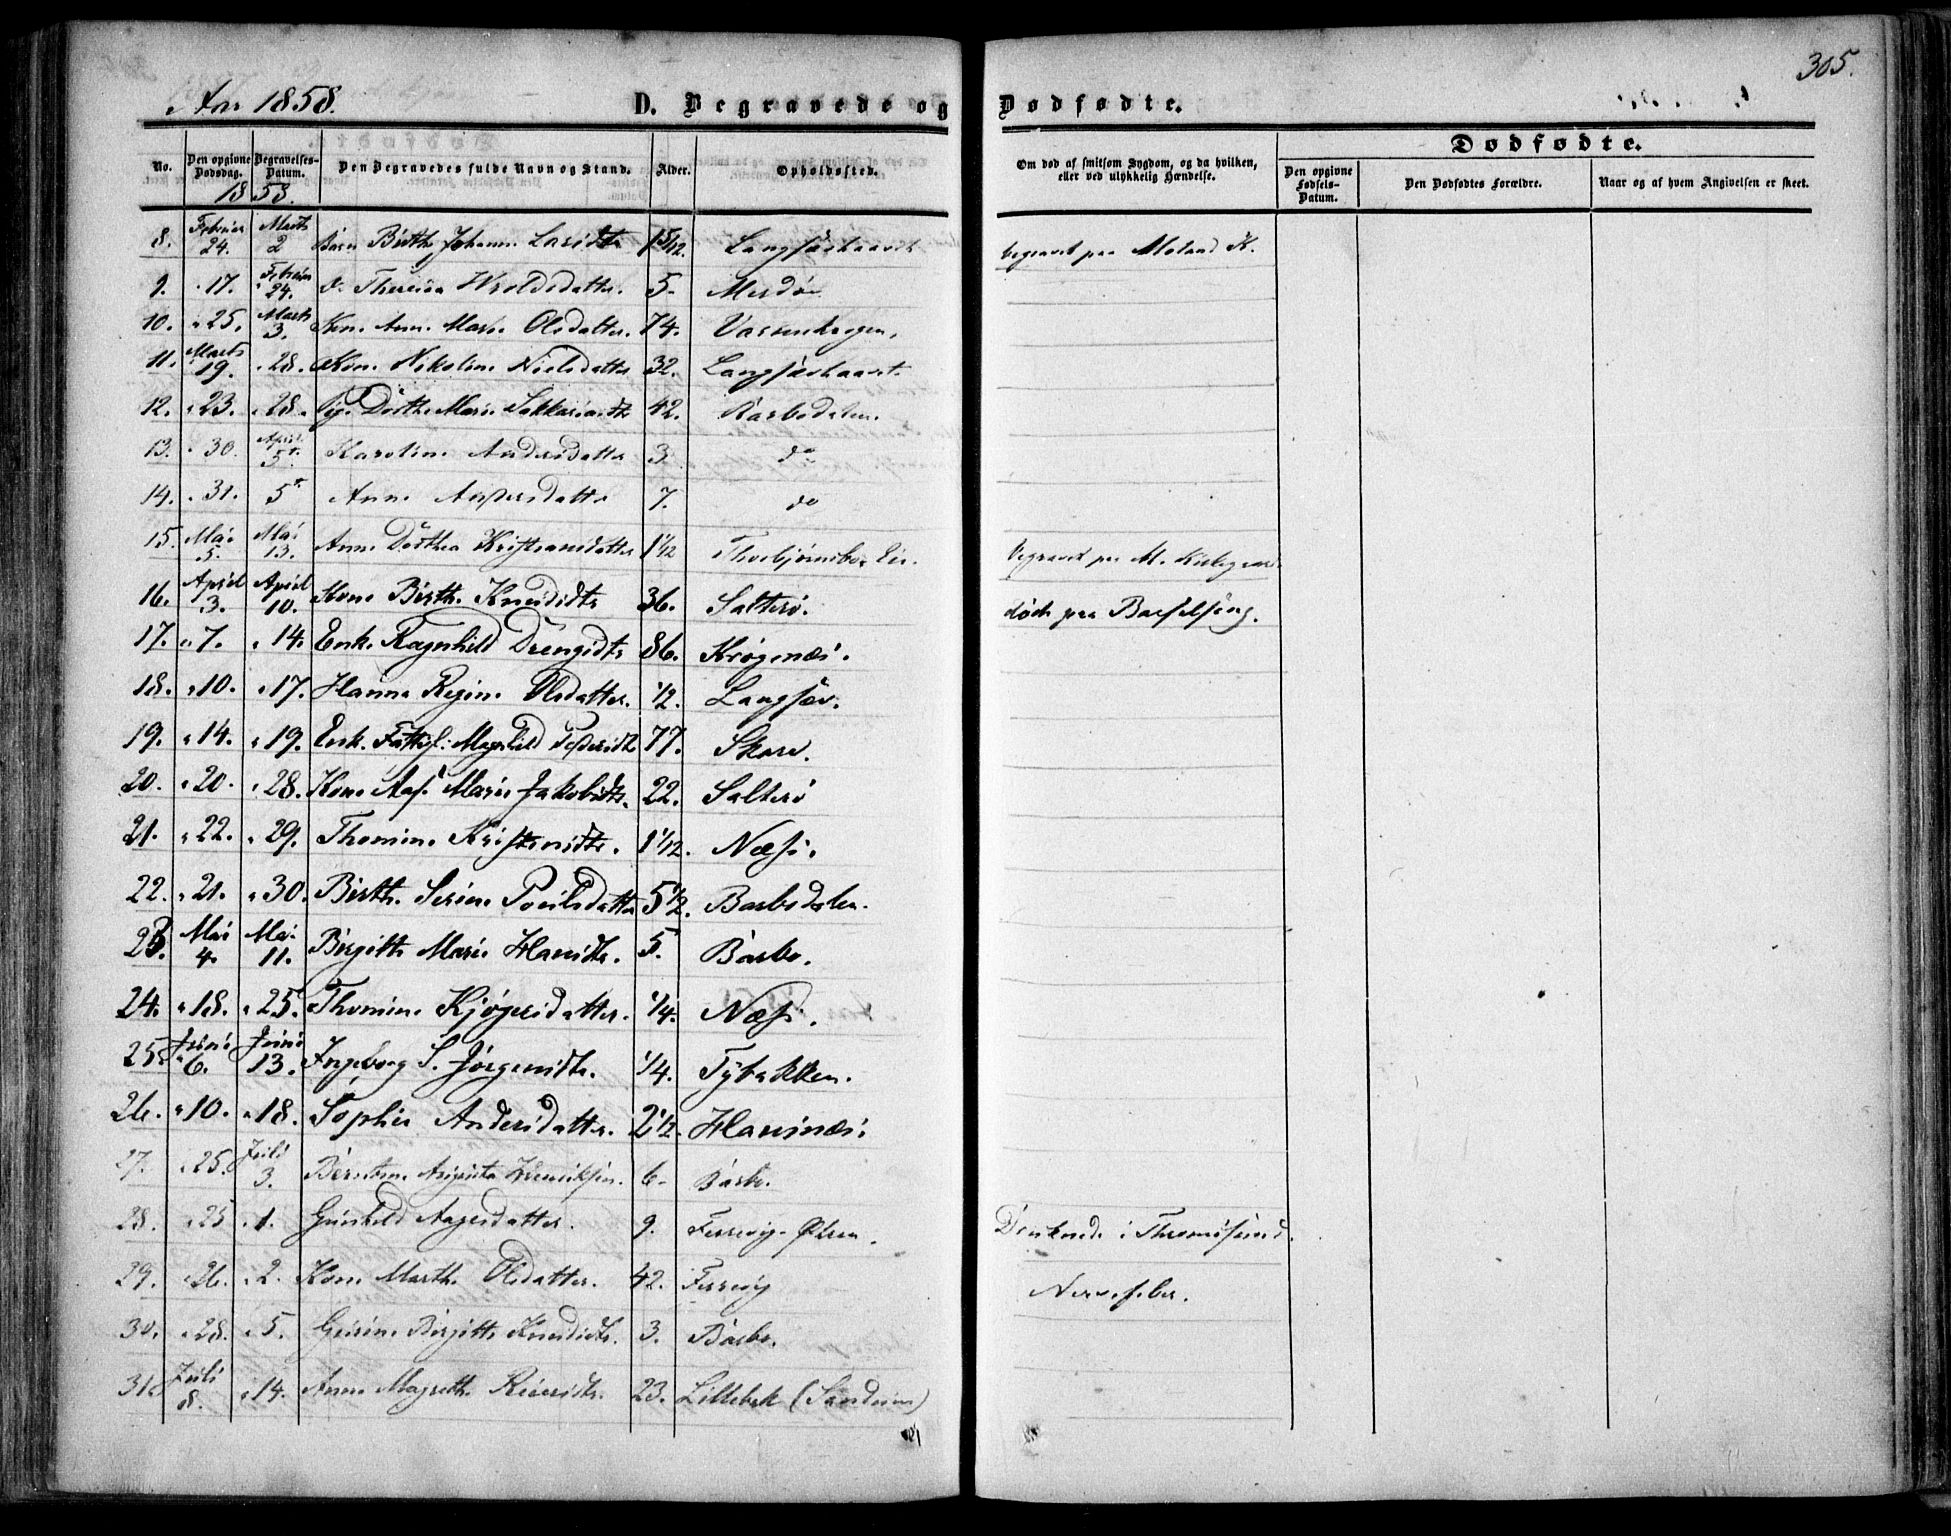 305.
Aar 1858.
D. Begravede og Dødfødte.
No. Den opgivne Dødsdag. Begravelses-Datum. Den Begravedes fulde Navn og Stand. Alder. Opholdssted. Om død af smitsom Sygdom, og da hvilken, eller ved ulykkelig Hændelse. Dødfødte.
Den opgivne Fødsels-Datum. Den Dødfødtes Forældre. Naar og af hvem Angivelsen er skeet.
1858.
8. Februar 24. Marts 2 Barn Birthe Johanne Larsdtr 1 5/12. begravet paa Moland K.
9. " 17. Februar 24. do 5. Merdø
10. " 25. Marts 3. Kone Anne Marie Olsdatter. 74.
11. Marts 19. " 28. Kone Nikoline Nielsdatter 32.
12. " 23. " 28. Pige Dorthe Marie 42. Barbodalen.
13. " 30. April 5. Karoline Andersdatter 3 do
14. " 31. 5 Anne 7. do
15. Mai 5. Mai 13. Anne Dorthea Kristiansdatter 1 1/12 Begravet paa M. Kirkegaard
16. April 3. April 10. Kone Birthe Knudsdtr 36. Salterø. død paa Barselseng.
17. " 7. " 14. Enke Ragnhild 86. Krøgenæs.
18. " 10. " 17. Hanna Regine Olsdatter. 1/2. Langsæv.
19. " 14. " 19. Enke Fattigl: Magnhild 77. Skare.
20. " 20. " 28. Kone Aase Marie Jakobsdtr. 22. Salterø
21. " 22. " 29. Thomine Kristensdtr. 1 1/12. Næs.
22. " 21. " 30. Birthe Serine Poulsdatter 5 1/2. Barbodalen.
23. Mai 4. Mai 11. Birgitte Marie Hansdtr. 5. Barbo.
24. " 18. " 25. Thomine 1/4. Næs.
25. Juni 6. Juni 13. Ingeborg S. Jörgensdtr. 1/4. Tybakken.
26. " 10. " 18. Sophie Andersdatter. 2 1/2. Havsnæs.
27. " 25. Juli 3. Henriksen. 6. Barbo.
28. " 25 " 1. Gunhild Aagesdatter. 9. Druknede i Thromøsund.
29. " 26. " 2. Kone Marthe Olsdatter. 42. Nervefeber.
30. " 28. " 5. Gusine Birgitte Knudsdtr. 3. Barbo.
31. Juli 8. " 14. Anne Magrethe 23. Lillebek